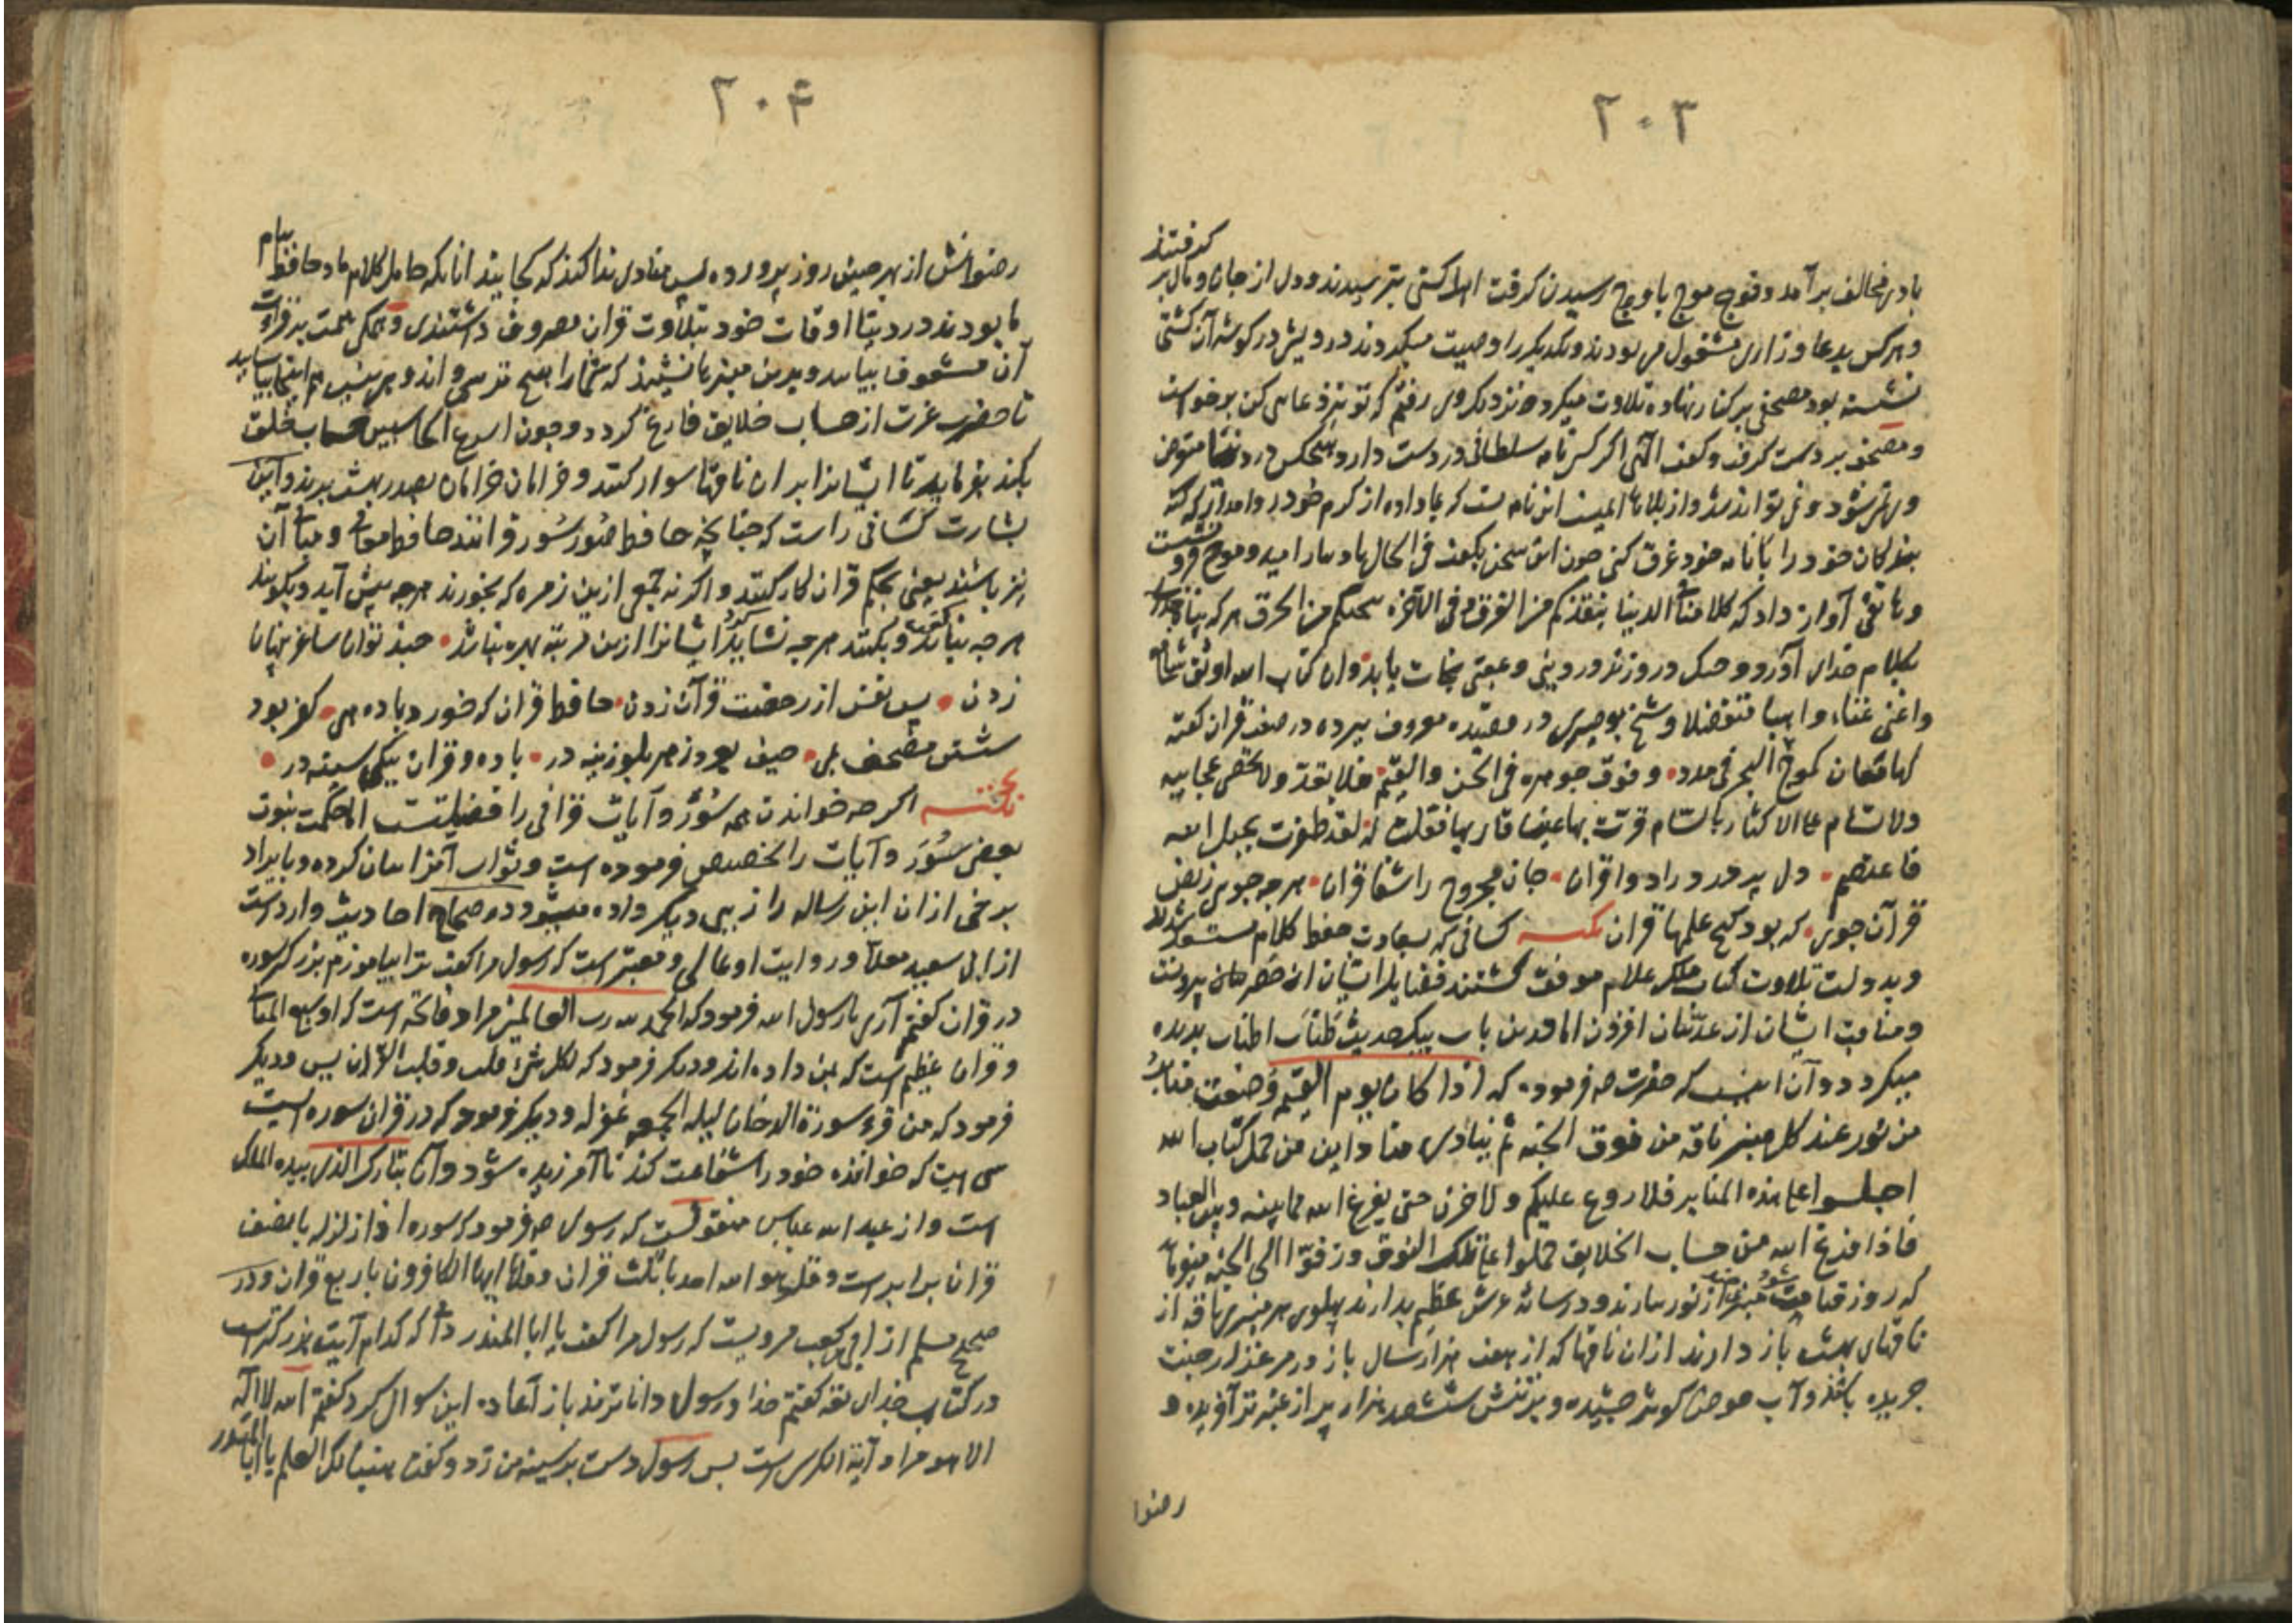 ۲۰۳
کرفتند
باد مخالف برآمد و فوج موج باوج رسیدن کرفت اهل کشتی بترسیدند و دل از جان و مال بر
و هر کس بدعا و زاری مشغول می بودند و یکدیکر را وصیت میکردند درویش در کوشه آن کشتی
نشسته بود مصحفی بر کنار نهاده تلاوت میکرد نزدیک وی رفتم که تو نیز دعایی کن برخواست
و مصحف بر دست کرفت و کفت الهی اکر کسی نامه سلطانی در دست دارد هیچکس در دنیا متعرض
وی نشود و نمی تواند شد و از بلاها ایمن این نامه تست که بما داده از کرم خود روا مدار که
بندکان خود را با نامه خود غرق کنی چون این سخن بکفت فی الحال باد بیارامید و موج فرو نشست
و هاتفی آواز داد که کلامنا فی الدنیا ینقذکم من الغرق و فی الآخرة ینجیکم من الحرق هر که پناه
بکلام خدای آورد و چنک در وی زند در دنیی و عقبی نجات یابد وان کتاب الله اوثق شافع
واغنی غناء واهبا متفضلا و شیخ بوصیری در قصیده معروف ببرده در صفت قرآن کفته
لها معان کموج البحر فی مدد و فوق جوهره فی الحسن والقیم فلا تعدّ ولا تحصی عجایبها
ولا تسام علی الاکثار بالسام قرت بها عین قاریها فقلت له لقد ظفرت بحبل الله
فاعتصم دل پر درد را دوا قران جان مجروح را شفا قران هر چه جویی ز نص
قرآن جوی که بود کنج علمها قران نکته کسانی که بسعادت حفظ کلام
و بدولت تلاوت کتاب ملک علام موفق کشتند فضایل ایشان از حصر بیرونست
و مناقب ایشان از عدّ افزون اما درین باب بیک حدیث طناب اطناب بریده
میکردد و آن اینست که حضرت صم فرموده که اذا کان یوم القیمة وضعت منابر
من نور عند کل منبر ناقة من نوق الجنة ثم ینادی مناد این من حمل کتاب الله
اجلسوا علی هذه المنابر فلا روع علیکم ولا حزن حتی یفرغ الله مما بینه وبین العباد
فاذا فرغ الله من حساب الخلایق حملوا علی تلک النوق وزفوا الی الجنة
که روز قیامت منبرها از نور بیارند و در سایه عرش عظیم بدارند پهلوی هر منبری ناقه از
ناقهای بهشت باز دارند ازان ناقها که از هفت هزار سال باز در مرغزار جنت
جریده باشند و آب حوض کوثر چشیده و بر تنش ششصد هزار پر از عنبر تر آفریده و
رضوا
۲۰۴
رضوانش از بهر چنین روز پرورده پس منادی ندا کند که کجایند انانکه حامل کلام ما و حافظ پیام
ما بودند و در دنیا اوقات خود بتلاوت قران مصروف داشتندی و همکی همت بر قراءت
آن مشعوف بیایید و برین منبرها نشینید که شمارا هیچ ترسی و اندوهی نیست
تا حضرت عزت از حساب خلایق فارغ کردد و چون اسرع الحاسبین حساب خلق
بکند بفرماید تا ایشانرا بران ناقها سوار کنند و خرامان خرامان بصدر بهشت برند و این
بشارت کسانی راست که چنانچه حافظ صُور سُور قرانند حافظ معانی و مبانی آن
نیز باشند یعنی بحکم قران کار کنند و اکر نه جمعی ازین زمره که بخورند هر چه پیش آید و بکویند
هر چه نباید کفت و بکنند هر چه نشاید کرد ایشانرا ازین مرتبه بهره نباشد چند توان ساغر پنهان
زدن پس نفس از رخصت قرآن زدن حافظ قران که خورد باده می کفر بود
شستن مصحف بمی حیف بود زهر بلوزینه در باده و قران بیکی سینه در
نکته اکر چه خواندن همه سُوَر و آیات قرآنی را فضیلتست اما حکمت نبوت
بعضی سُوَر و آیات را تخصیص فرموده است و ثواب آنرا بیان کرده و بایراد
برخی ازان این رساله را زیبی دیکر داده میشود در صحاح احادیث وارد است
از ابی سعید معلّا و روایت او عالی و معتبر است که رسول مرا کفت ترا بیاموزم بزرکتر سوره
در قران کفتم آری یا رسول الله فرمود که الحمد لله رب العالمین مراد فاتحه است که او سبع المثانی
و قران عظیم است که بمن داده اند و دیکر فرمود که لکل شیء قلب و قلب القرآن یس و دیکر
فرمود که من قرء سورة الدخان لیلة الجمعة غفر له و دیکر فرمود که در قران سوره ایست
سی ایت که خواننده خود را شفاعت کند تا آمرزیده شود و آن تبارک الذی بیده الملک
است و از عبد الله عباس منقولست که رسول صم فرمود که سوره اذا زلزله با نصف
قران برابر است و قل هو الله احد با ثلث قران و قل یا ایها الکافرون با ربع قران و در
صحیح مسلم از ابی کعب مرویست که رسول مرا کفت یا ابا المنذر که کدام آیت بزرکتر است
در کتاب خدای تعه کفتم خدا و رسول داناترند باز آعاده این سوال کرد کفتم الله لا اله
الا هو مراد آیة الکرسی است پس رسول دست بر سینه من زد و کفت هنیئا لک العلم یا ابا المنذر